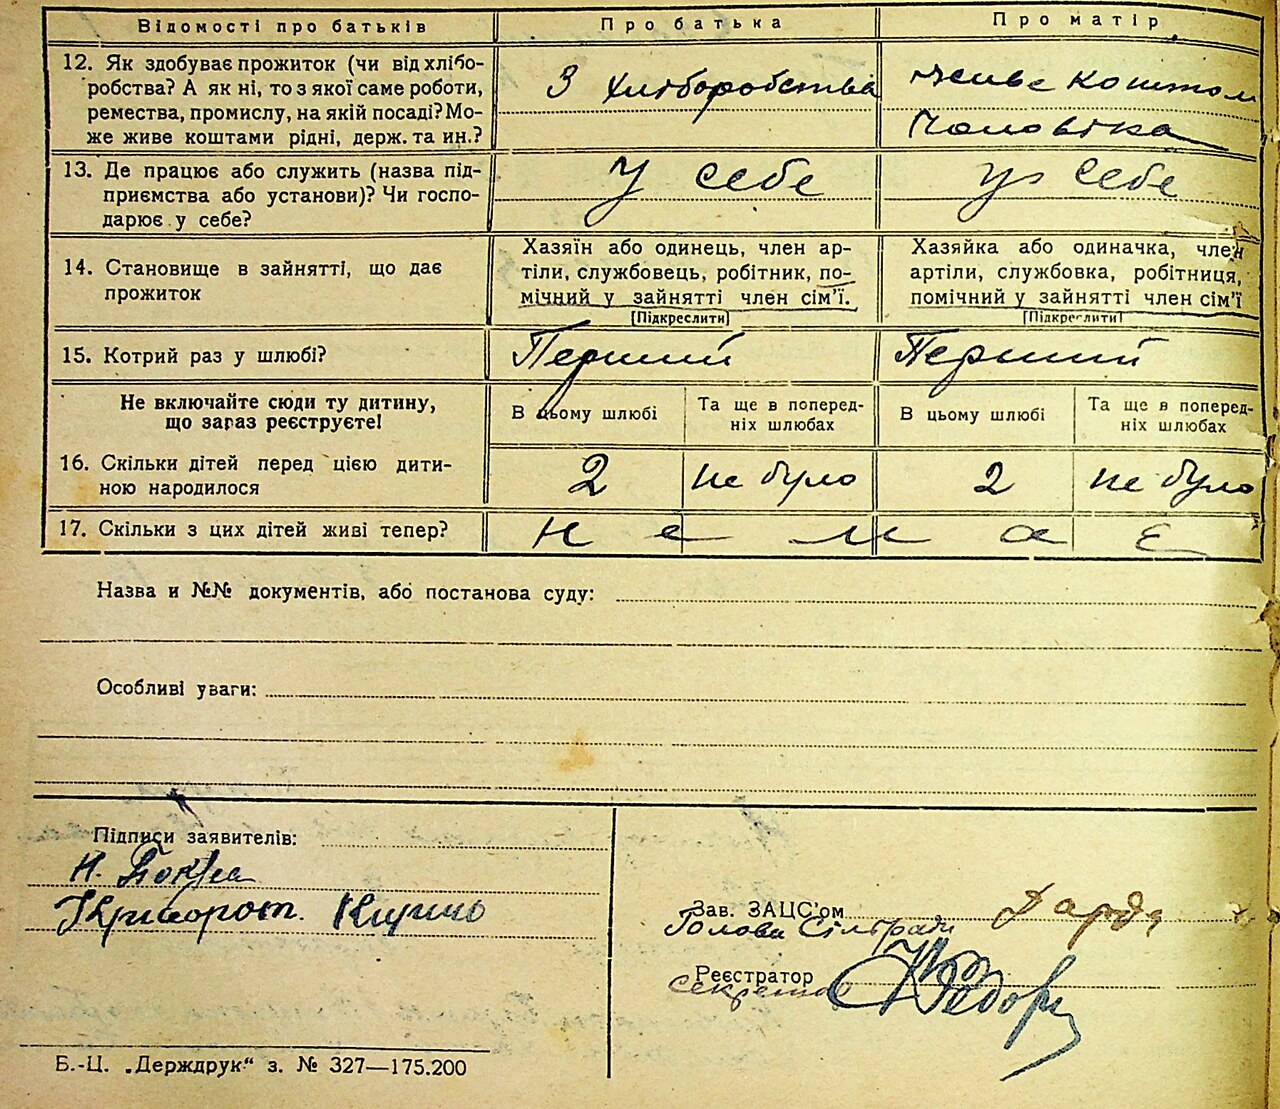 Відомості про батьків
Про батька
Про матір
12. Як здобуває прожиток (чи від хлібо-
робства? А як ні, то з якої саме роботи,
ремества, промислу, на якій посаді? Мо-
же живе коштами рідні, держ. та ин.?
З хліборобства
живе коштом
чоловіка
13. Де працює або служить (назва під-
приємства або установи)? Чи госпо-
дарює у себе?
У себе
у себе
14. Становище в зайнятті, що дає
прожиток
Хазяїн або одинець, член ар-
тіли, службовець, робітник, по-
мічний у зайнятті член сім'ї.
[Підкреслити]
Хазяйка або одиначка, член
артіли, службовка, робітниця,
помічний у зайнятті член сім'ї
[Підкреслити]
15. Котрий раз у шлюбі?
Перший
Перший
Не включайте сюди ту дитину,
що зараз реєструєте!
В цьому шлюбі
Та ще в поперед-
ніх шлюбах
В цьому шлюбі
Та ще в поперед-
ніх шлюбах
16. Скільки дітей перед цією дити-
ною народилося
2
не було
2
не було
17. Скільки з цих дітей живі тепер?
н е м а є
Назва и №№ документів, або постанова суду:
Особливі уваги:
Підписи заявителів:
Зав. ЗАЦС'ом
Голова Сільради
Реєстратор
секретар
Б.-Ц. „Держдрук" з. № 327—175.200